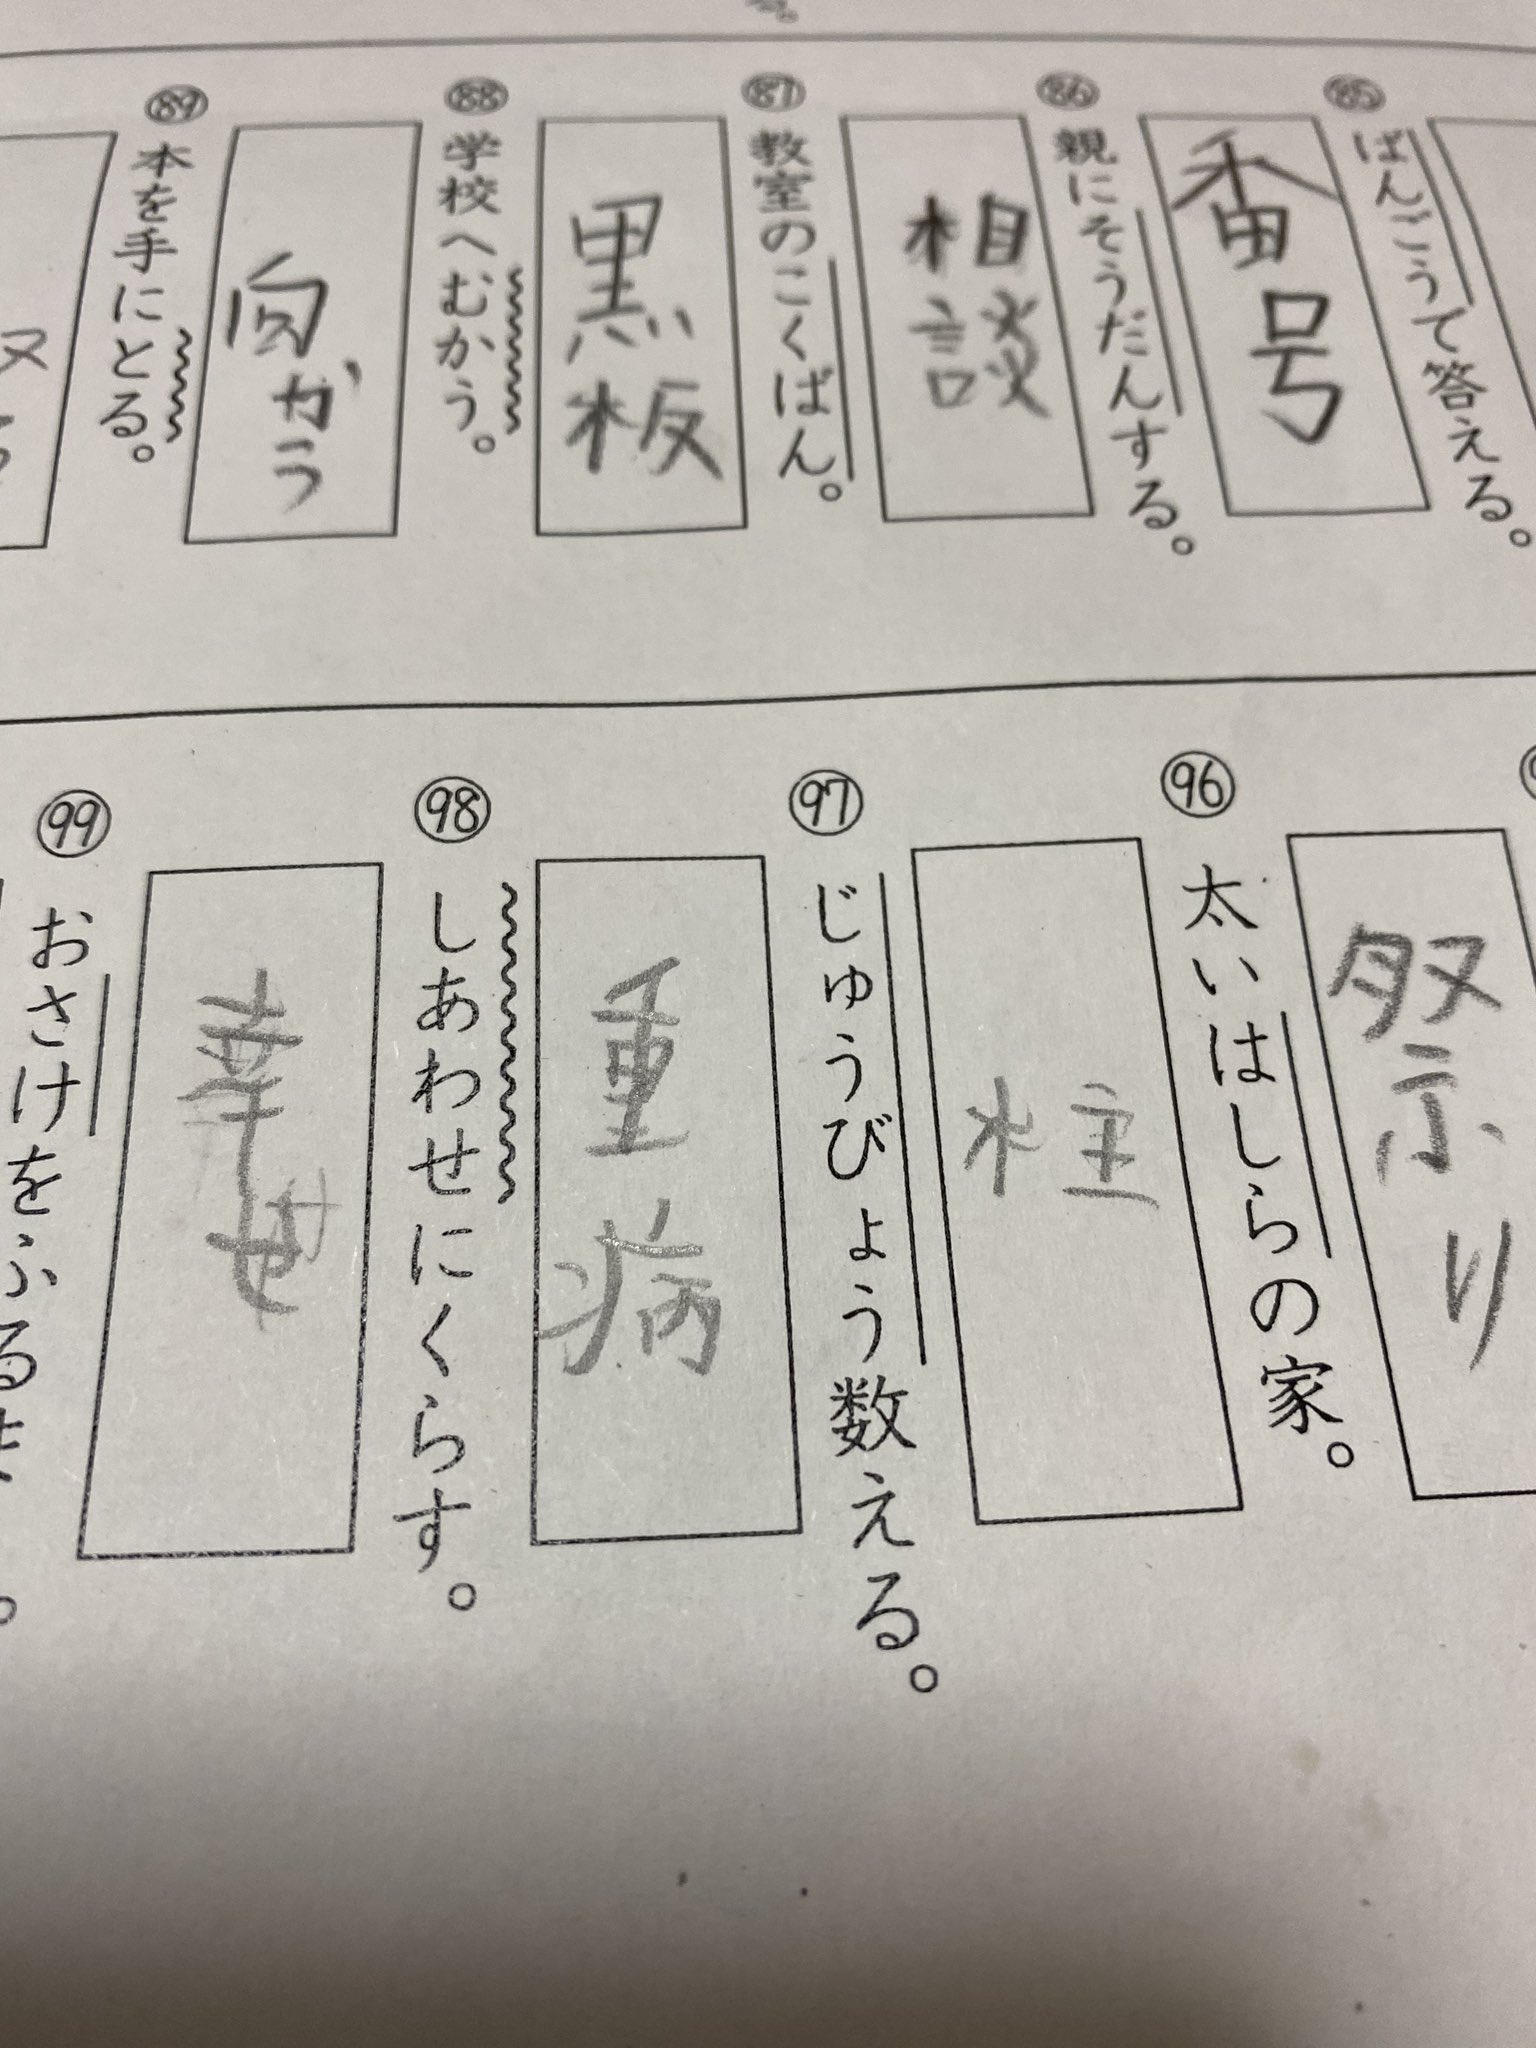 ⑧⑤ ばんごうで答える。
番号
⑧⑥ 親にそうだんする。
相談
⑧⑦ 教室のこくばん。
黒板
⑧⑧ 学校へむかう。
向かう
⑧⑨ 本を手にとる。
祭り
⑨⑥ 太いはしらの家。
柱
⑨⑦ じゅうびょう数える。
重病
⑨⑧ しあわせにくらす。
幸せ
⑨⑨ おさけをふるま